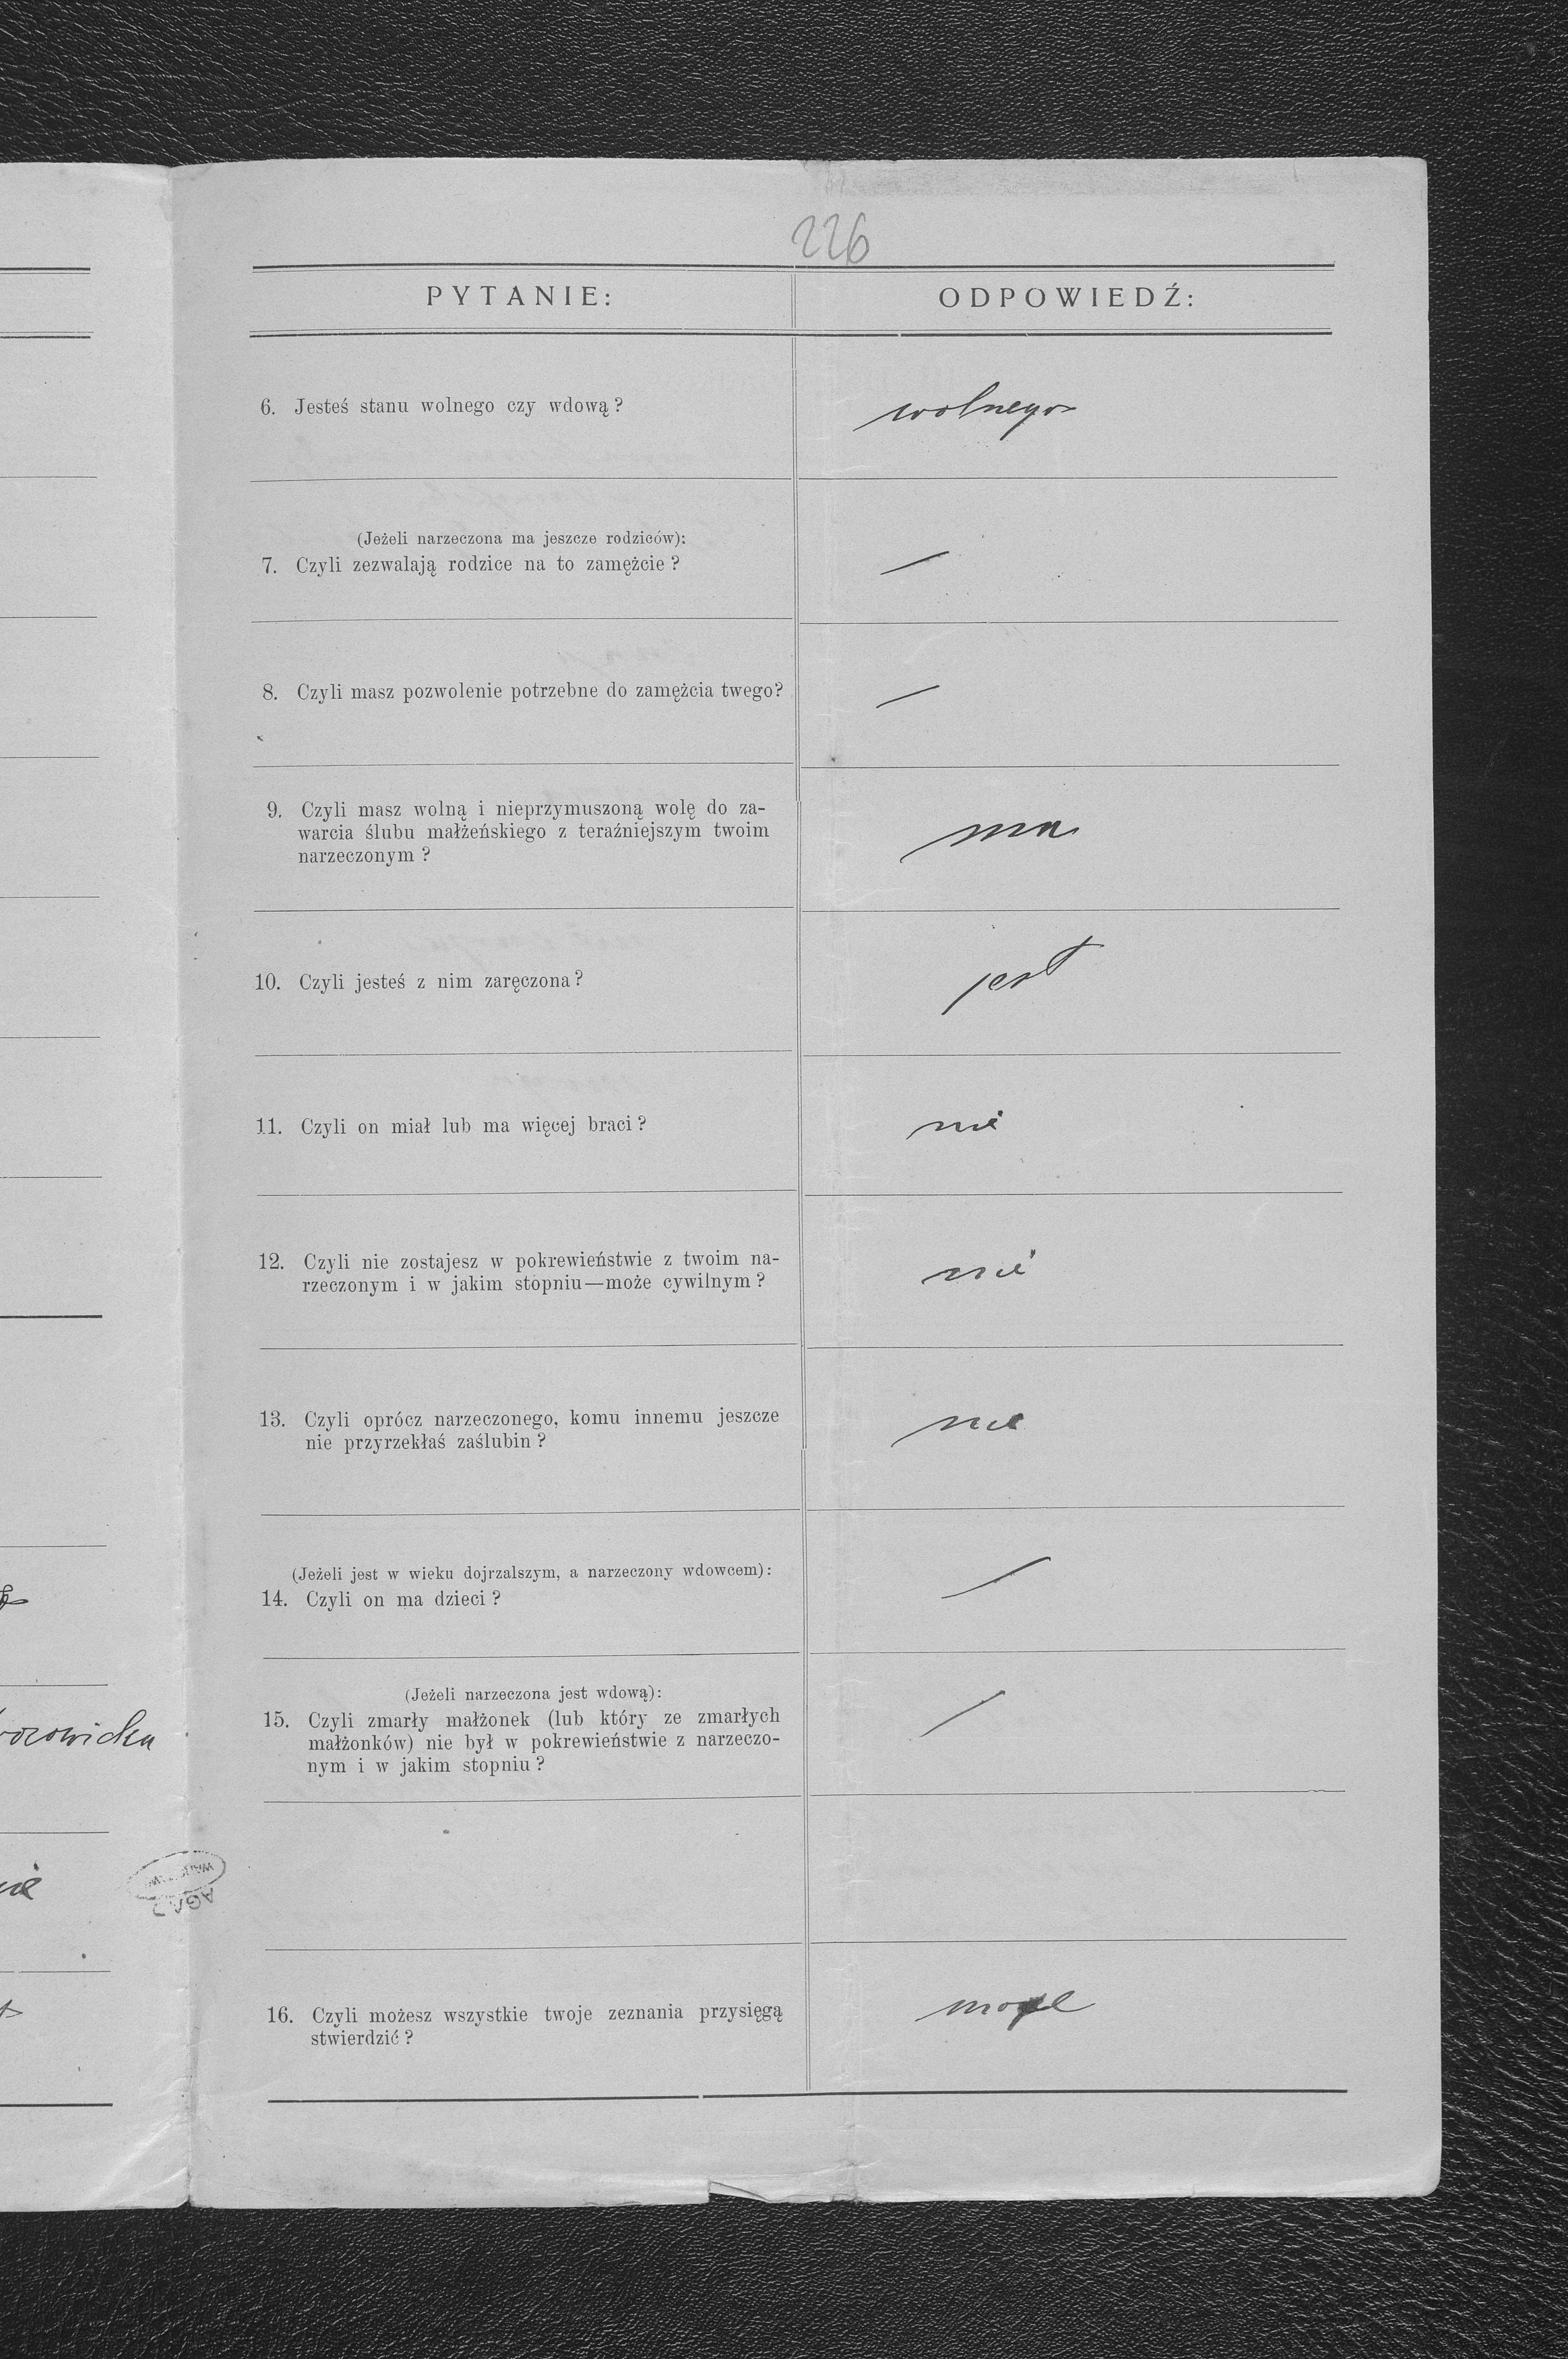 226
PYTANIE:
ODPOWIEDŹ:
6. Jesteś stanu wolnego czy wdową?
wolnego
(Jeżeli narzeczona ma jeszcze rodziców):
7. Czyli zezwalają rodzice na to zamężcie?
—
8. Czyli masz pozwolenie potrzebne do zamężcia twego?
—
9. Czyli masz wolną i nieprzymuszoną wolę do za-
warcia ślubu małżeńskiego z teraźniejszym twoim
narzeczonym?
ma
10. Czyli jesteś z nim zaręczona?
jest
11. Czyli on miał lub ma więcej braci?
nie
12. Czyli nie zostajesz w pokrewieństwie z twoim na-
rzeczonym i w jakim stopniu—może cywilnym?
nie
13. Czyli oprócz narzeczonego, komu innemu jeszcze
nie przyrzekłaś zaślubin?
nie
(Jeżeli jest w wieku dojrzalszym, a narzeczony wdowcem):
14. Czyli on ma dzieci?
—
(Jeżeli narzeczona jest wdową):
15. Czyli zmarły małżonek (lub który ze zmarłych
małżonków) nie był w pokrewieństwie z narzeczo-
nym i w jakim stopniu?
—
nie
AGAD
16. Czyli możesz wszystkie twoje zeznania przysięgą
stwierdzić?
może